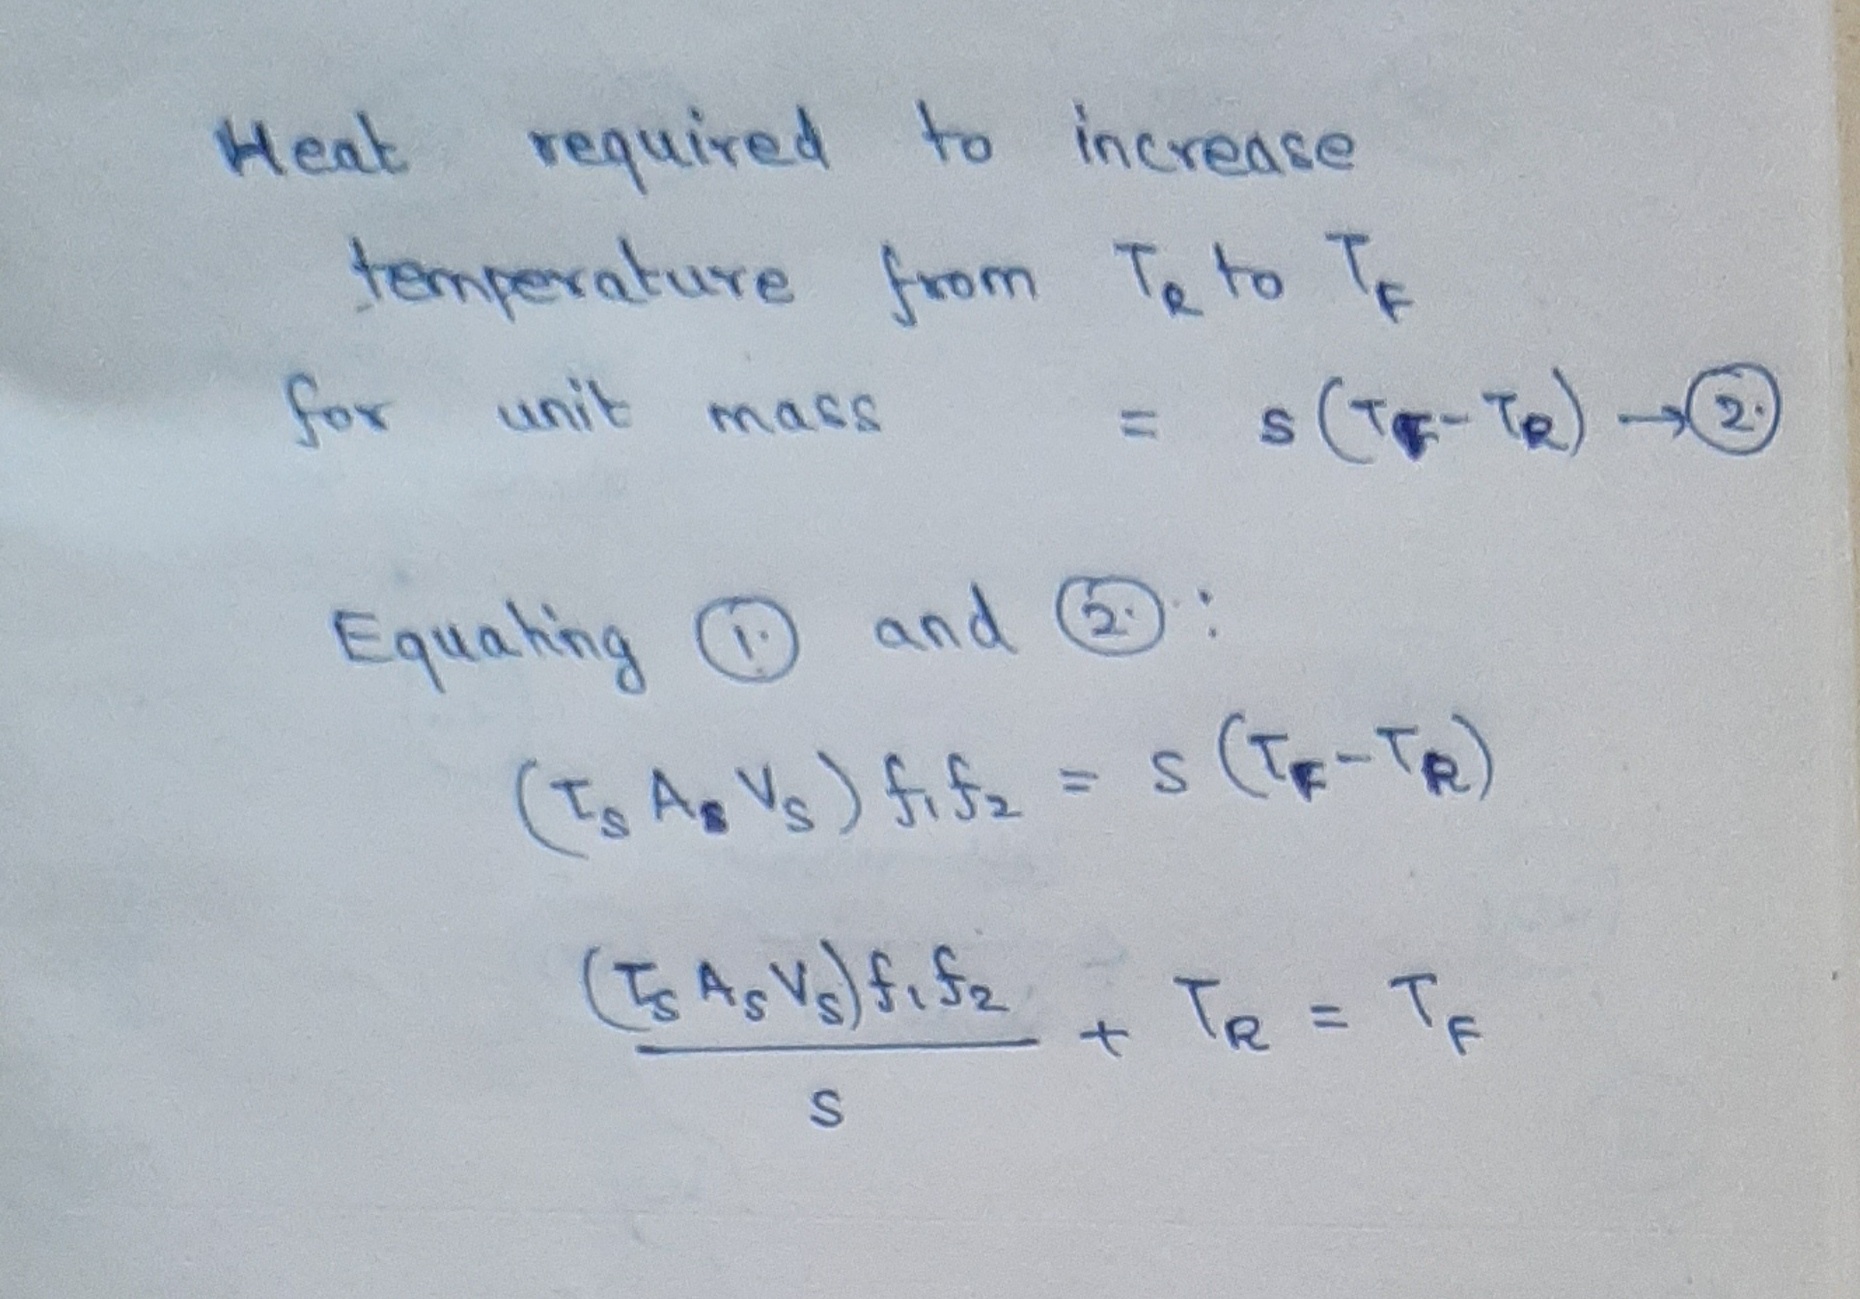 Heat required to increase
temperature from T_R to T_F
for unit mass = s(T_F - T_R) → ②.
Equating ①. and ②.:
(τ_s A_s V_s) f_1 f_2 = s (T_F - T_R)
(τ_s A_s V_s) f_1 f_2 / s + T_R = T_F